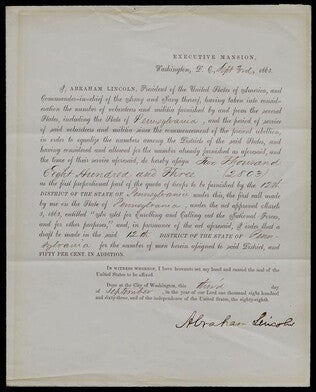 EXECUTIVE MANSION,
Washington, D. C, Sept 3rd, 1863.
I, ABRAHAM LINCOLN, President of the United States of America, and
Commander-in-chief of the Army and Navy thereof, having taken into consid-
eration the number of volunteers and militia furnished by and from the several
States, including the State of Pennsylvania, and the period of service
of said volunteers and militia since the commencement of the present rebellion,
in order to equalize the numbers among the Districts of the said States, and
having considered and allowed for the number already furnished as aforesaid, and
the time of their service aforesaid, do hereby assign Two Thousand
Eight Hundred and Three 2803
as the first proportional part of the quota of troops to be furnished by the 12th
DISTRICT OF THE STATE OF Pennsylvania under this, the first call made
by me on the State of Pennsylvania, under the act approved March
3, 1863, entitled "An Act for Enrolling and Calling out the National Forces,
and for other purposes," and, in pursuance of the act aforesaid, I order that a
draft be made in the said 12th DISTRICT OF THE STATE OF Penn-
sylvania for the number of men herein assigned to said District, and
FIFTY PER CENT. IN ADDITION.
IN WITNESS WHEREOF, I have hereunto set my hand and caused the seal of the
United States to be affixed.
Done at the City of Washington, this Third day
of September, in the year of our Lord one thousand eight hundred
and sixty-three, and of the independence of the United States, the eighty-eighth.
Abraham Lincoln